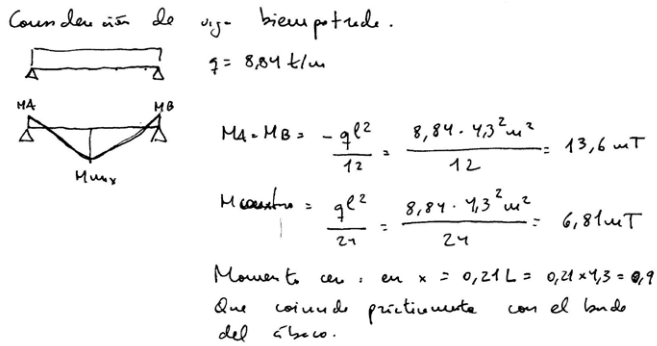 Consideración de viga biempotrada.
q = 8,84 t/m
MA MB
Mmax
MA = MB = - ql²/12 = 8,84 · 4,3² m²/12 = 13,6 mT
Mcentro = ql²/24 = 8,84 · 4,3² m²/24 = 6,81 mT
Momento cero en x = 0,21 L = 0,21 x 4,3 = 0,9
Que coincide prácticamente con el borde
del ábaco.